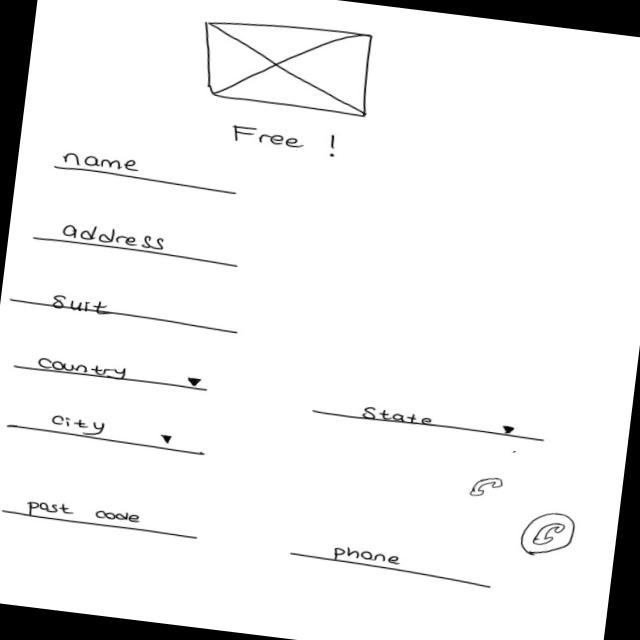 Free !
name
address
Suit
Country
State
City
post code
phone